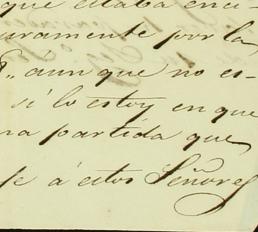 que estaba enci-
uramente por la
aun que no es-
si lo estoy en que
na partida que
se á estos Señores